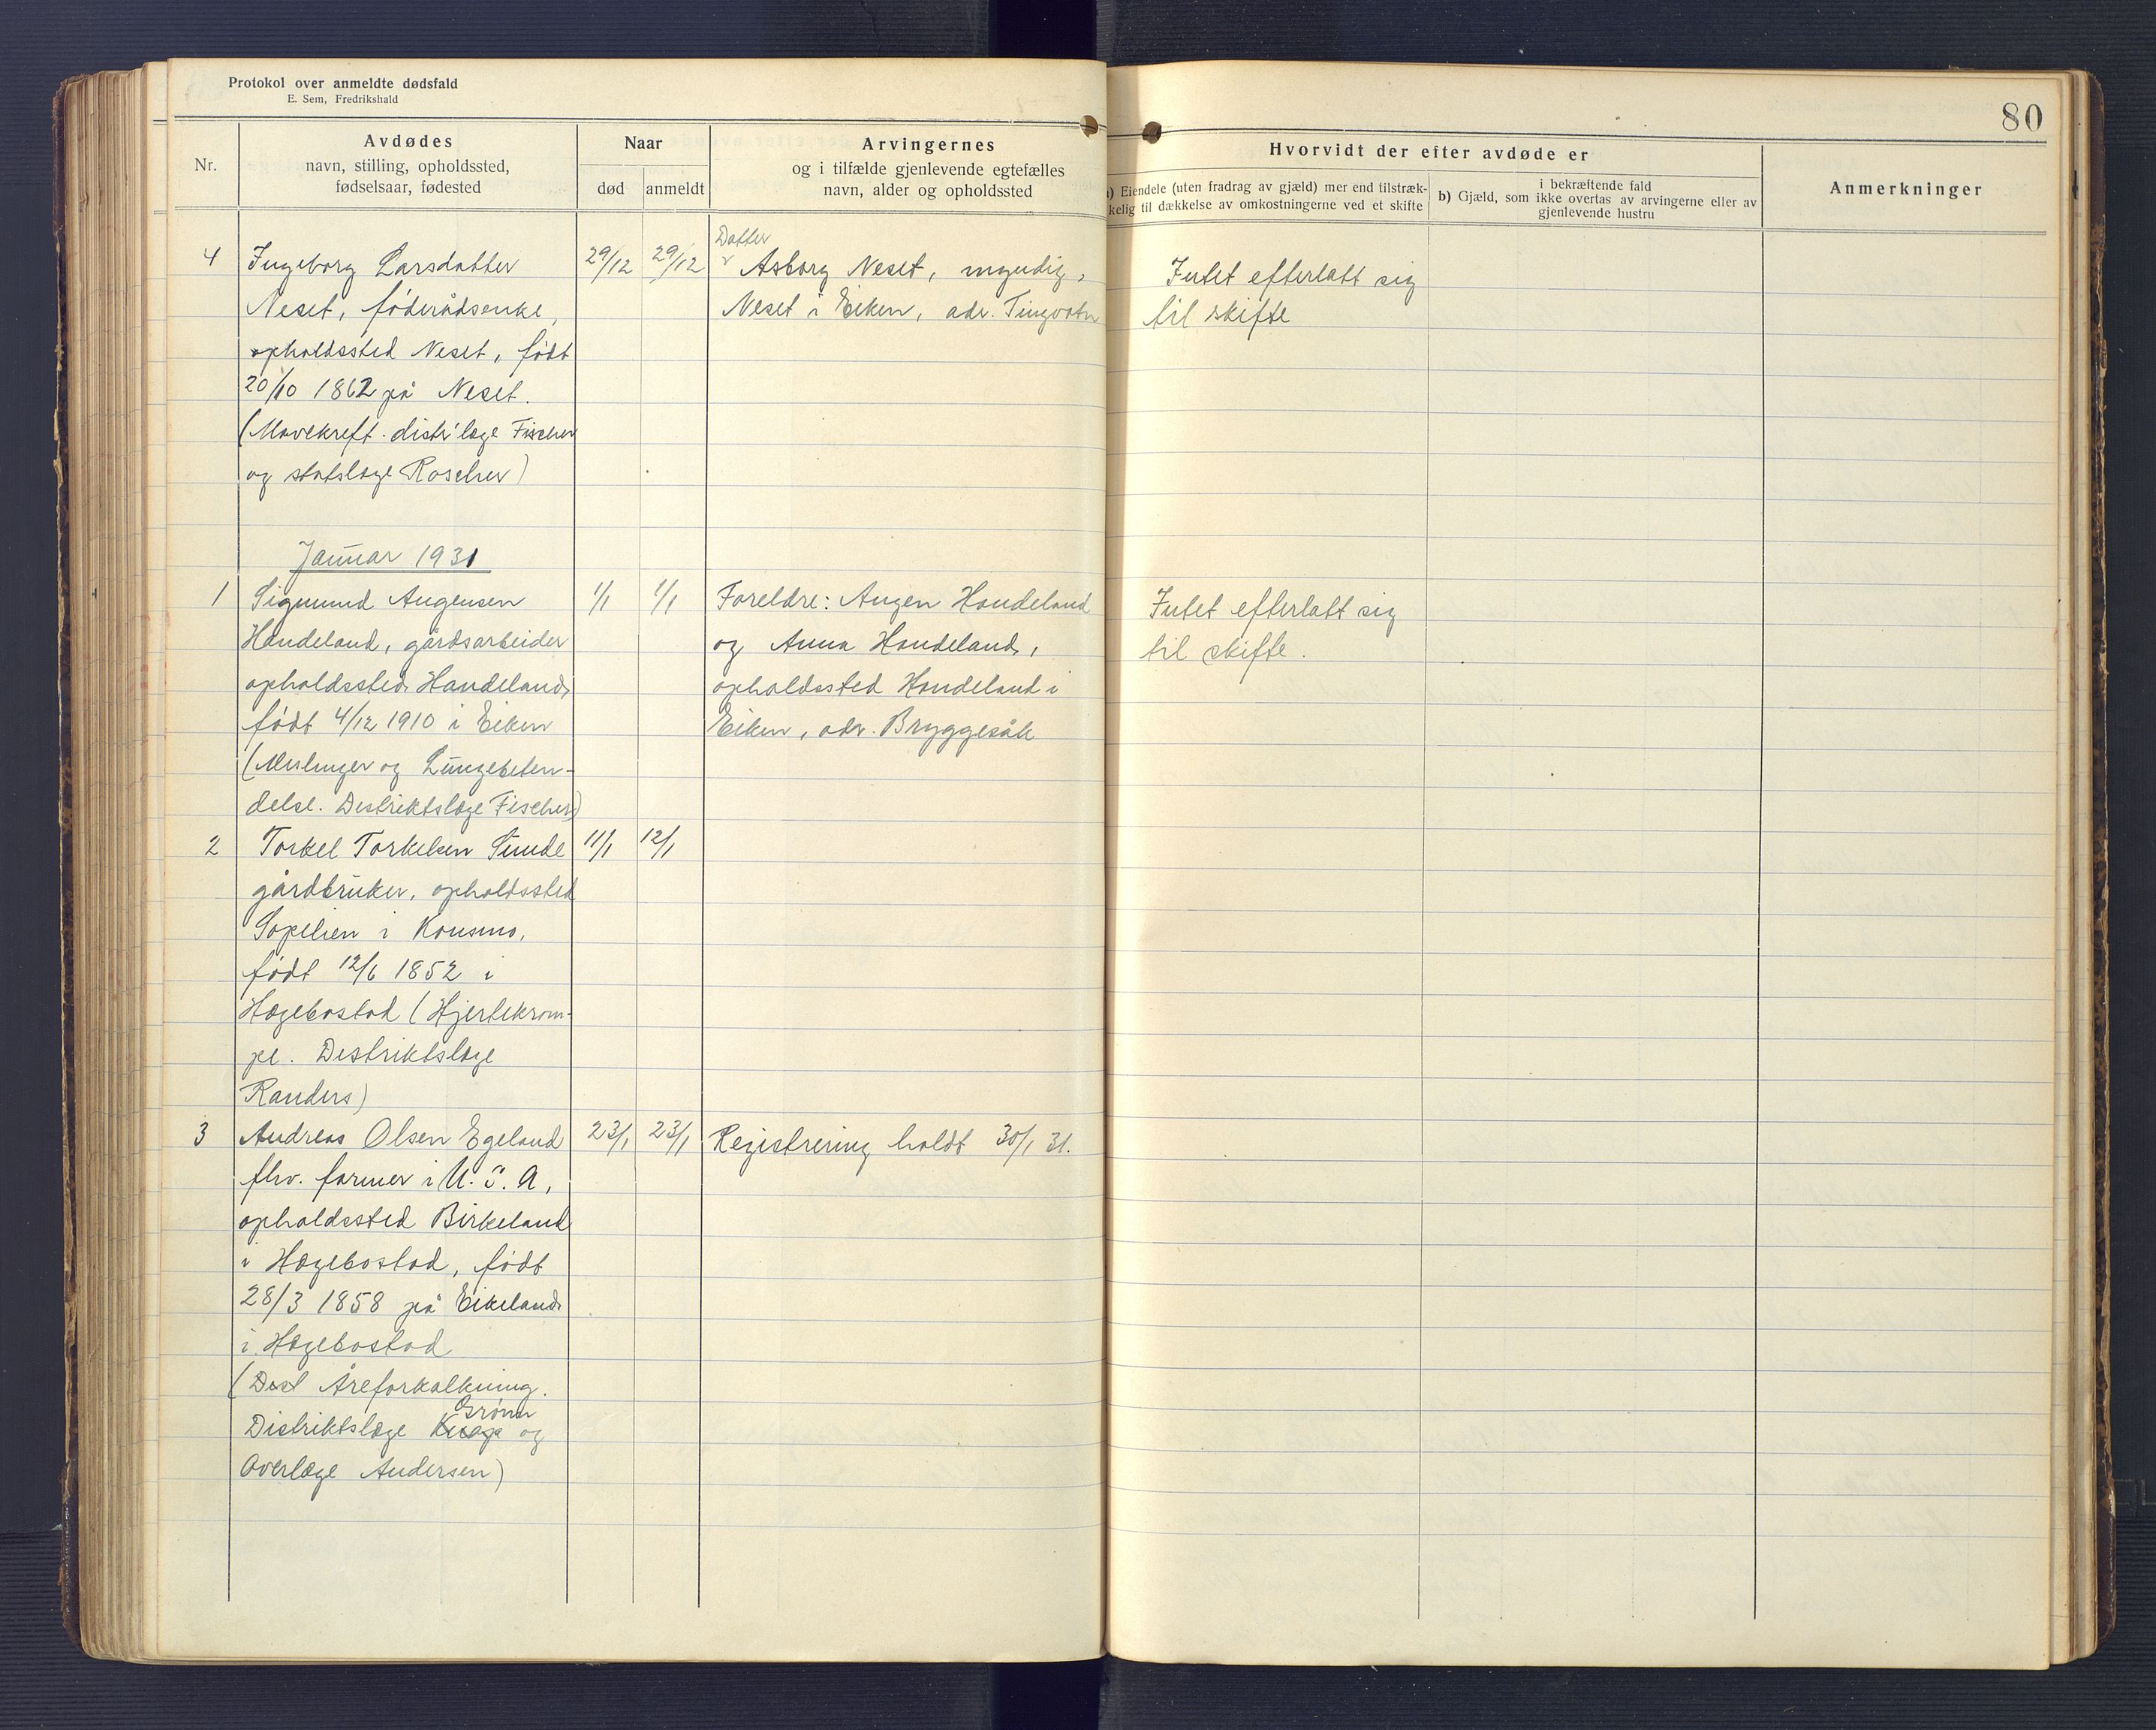 Protokol over anmeldte dødsfald
E. Sem, Fredrikshald
80
Nr.
Avdødes
navn, stilling, opholdssted,
fødselsaar, fødested
Naar
død
anmeldt
Arvingernes
og i tilfælde gjenlevende egtefælles
navn, alder og opholdssted
Hvorvidt der efter avdøde er
a) Eiendele (uten fradrag av gjæld) mer end tilstræk-
kelig til dækkelse av omkostningerne ved et skifte
i bekræftende fald
b) Gjæld, som ikke overtas av arvingerne eller av
gjenlevende hustru
Anmerkninger
4
Ingeborg Larsdatter
Neset, føderådsenke,
opholdssted Neset, født
20/10 1862 på Neset.
(Mavekreft. distr'læge Fischer
og statslæge Roscher)
29/12
29/12
Datter
Asborg Neset, myndig,
Neset i Eiken, adr. Tingvatn
Intet efterlatt sig
til skifte
Januar 1931
1
Sigmund Augensen
Handeland, gårdsarbeider
opholdssted Handeland,
født 4/12 1910 i Eiken
(Meslinger og Lungebeten-
delse. Distriktslæge Fischer)
1/1
1/1
Foreldre: Augen Handeland
og Anna Handeland,
opholdssted Handeland i
Eiken, adr. Bryggesåk
Intet efterlatt sig
til skifte.
2
Torkel Torkelsen Sunde
gårdbruker, opholdssted
i Konsmo,
født 12/6 1852 i
Hægebostad (Hjertekram-
pe. Distriktslæge
Randers)
11/1
12/1
3
Andreas Olsen Egeland
fhv. farmer i U.S.A,
opholdssted Birkeland
i Hægebostad, født
28/3 1858 på Eikeland
i Hægebostad
(Dist Åreforkalkning.
Grønn
Distriktslæge og
Overlæge Andersen)
23/1
23/1
Registrering holdt 30/1 31.